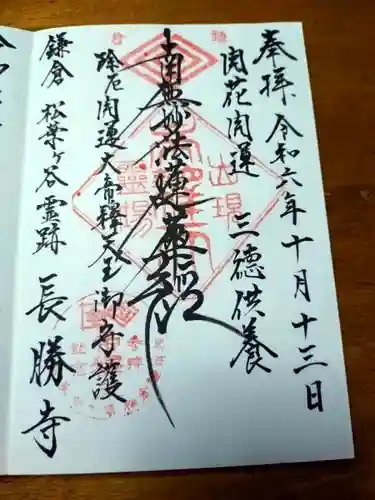 奉拝 令和六年十月十三日
開花開運 三徳供養
南無妙法蓮華経
除厄開運大帝釈天王御守護
鎌倉 松葉ヶ谷霊跡 長勝寺
出現
霊場